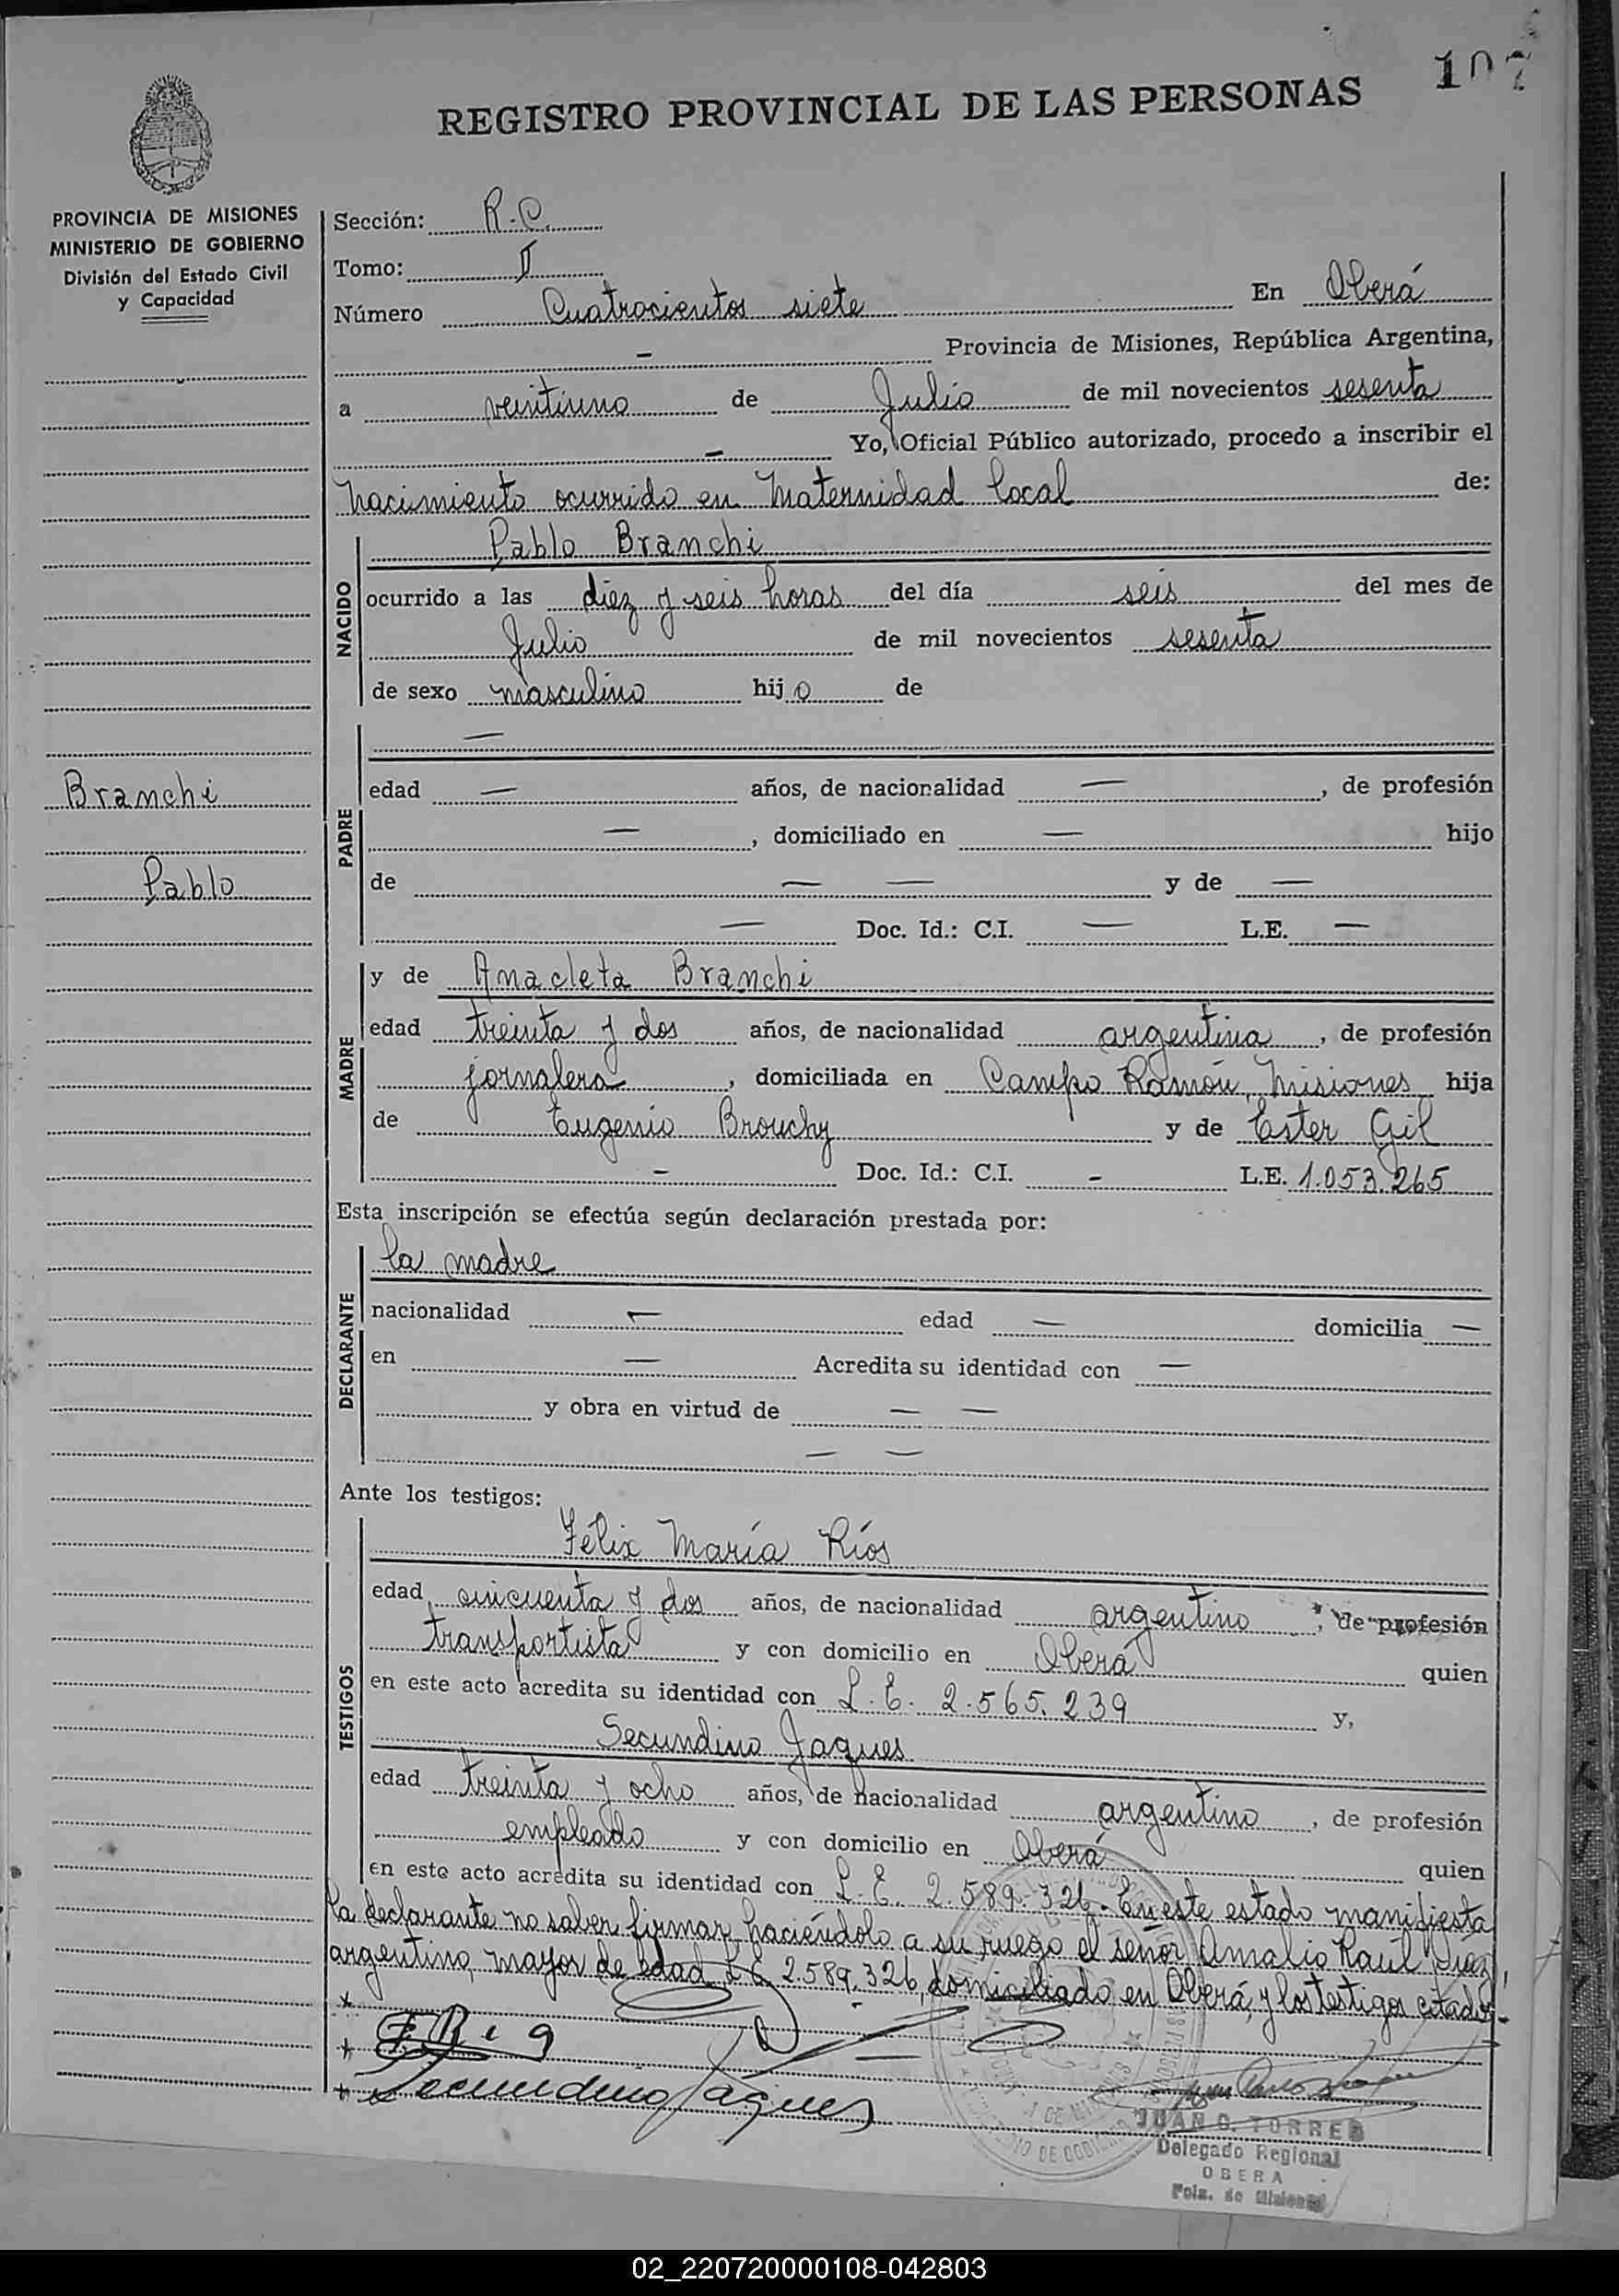 107
REGISTRO PROVINCIAL DE LAS PERSONAS
PROVINCIA DE MISIONES
MINISTERIO DE GOBIERNO
División del Estado Civil
y Capacidad
Branchi
Pablo
Sección: R.C.
Tomo: I
Número Cuatrocientos siete En Oberá
— Provincia de Misiones, República Argentina,
a veintiuno de Julio de mil novecientos sesenta
— Yo, Oficial Público autorizado, procedo a inscribir el
nacimiento ocurrido en Maternidad Local de:
NACIDO
Pablo Branchi
ocurrido a las diez y seis horas del día seis del mes de
Julio de mil novecientos sesenta
de sexo masculino hijo de
PADRE
—
edad — años, de nacionalidad —, de profesión
—, domiciliado en — hijo
de — — y de —
— Doc. Id.: C.I. — L.E. —
MADRE
y de Anacleta Branchi
edad treinta y dos años, de nacionalidad argentina, de profesión
jornalera, domiciliada en Campo Ramón, Misiones hija
de Eugenio Brouchy y de Ester Gil
— Doc. Id.: C.I. - L.E. 1.053.265
Esta inscripción se efectúa según declaración prestada por:
DECLARANTE
la madre
nacionalidad — edad — domicilia —
en — Acredita su identidad con —
y obra en virtud de — —
— —
Ante los testigos:
TESTIGOS
Félix María Ríos
edad cincuenta y dos años, de nacionalidad argentino, de profesión
transportista y con domicilio en Oberá quien
en este acto acredita su identidad con L.E. 2.565.239 y,
Secundino Jaques
edad treinta y ocho años, de nacionalidad argentino, de profesión
empleado y con domicilio en Oberá quien
en este acto acredita su identidad con L.E. 2.589.326. En este estado manifiesta
la declarante no saber firmar, haciéndolo a su ruego el señor Amalio Raúl
argentino, mayor de edad L.E. 2.589.326, domiciliado en Oberá, y los testigos citados.-
Secundino Jaques
JUAN C. TORRES
Delegado Regional
OBERA
Pcia. de Misiones
02_220720000108-042803